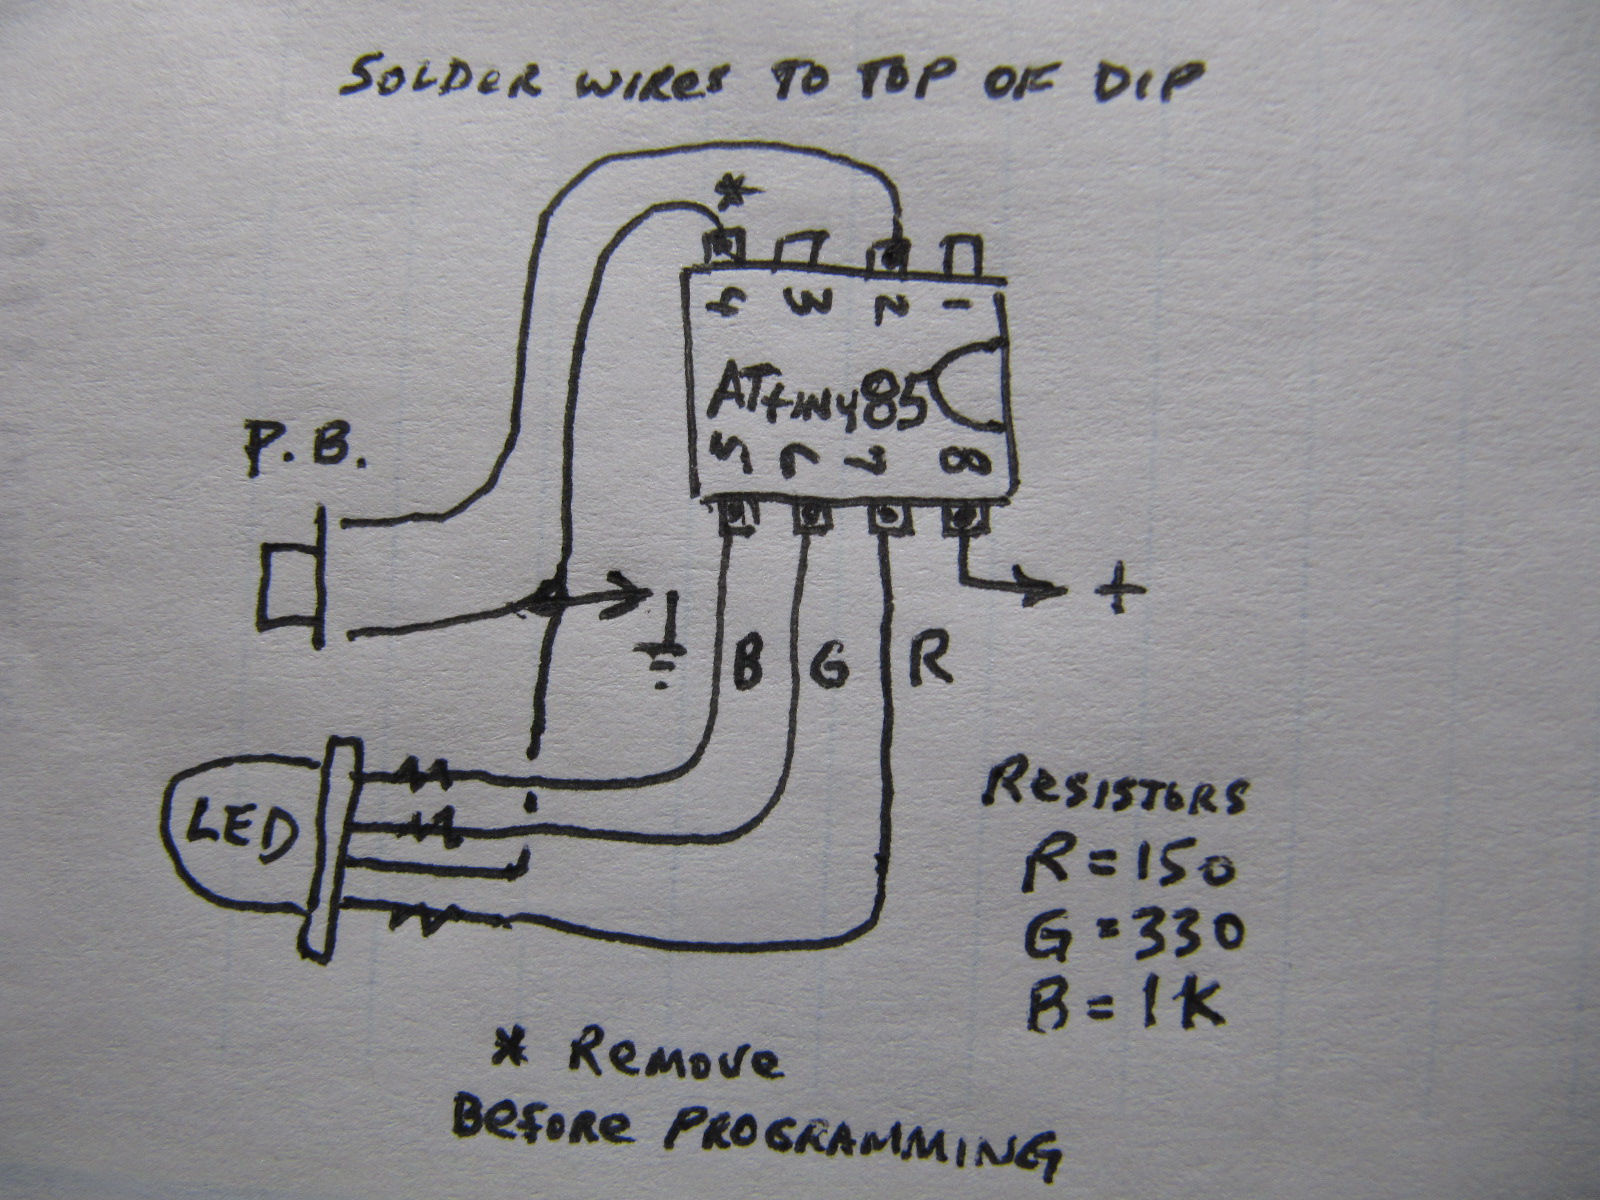 SOLDER WIRES TO TOP OF DIP
*
4 3 2 1
ATtiny85
5 6 7 8
P.B.
+
B G R
LED
RESISTORS
R = 150
G = 330
B = 1K
* REMOVE
BEFORE PROGRAMMING